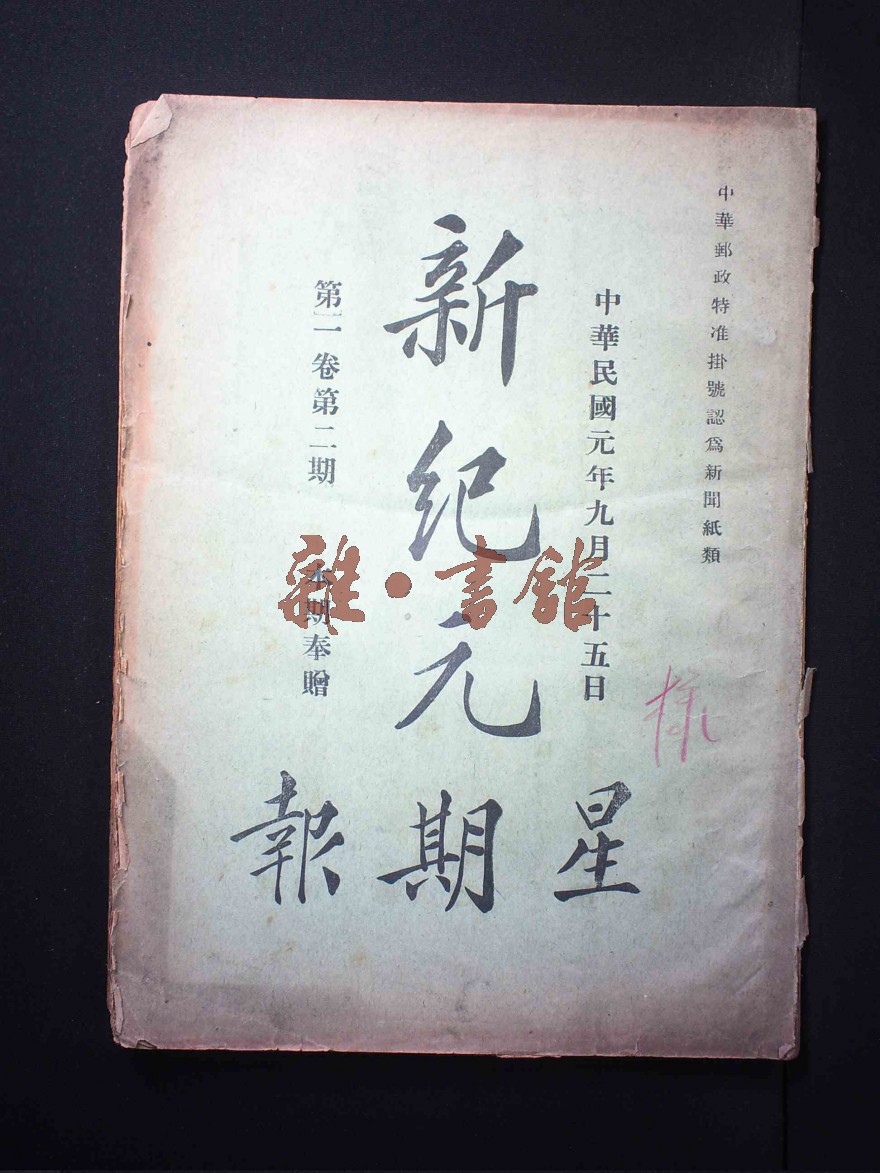 中華郵政特准掛號認爲新聞紙類
中華民國元年九月二十五日
新紀元
星期報
第一卷第二期 本期奉贈
樣
雜·書館